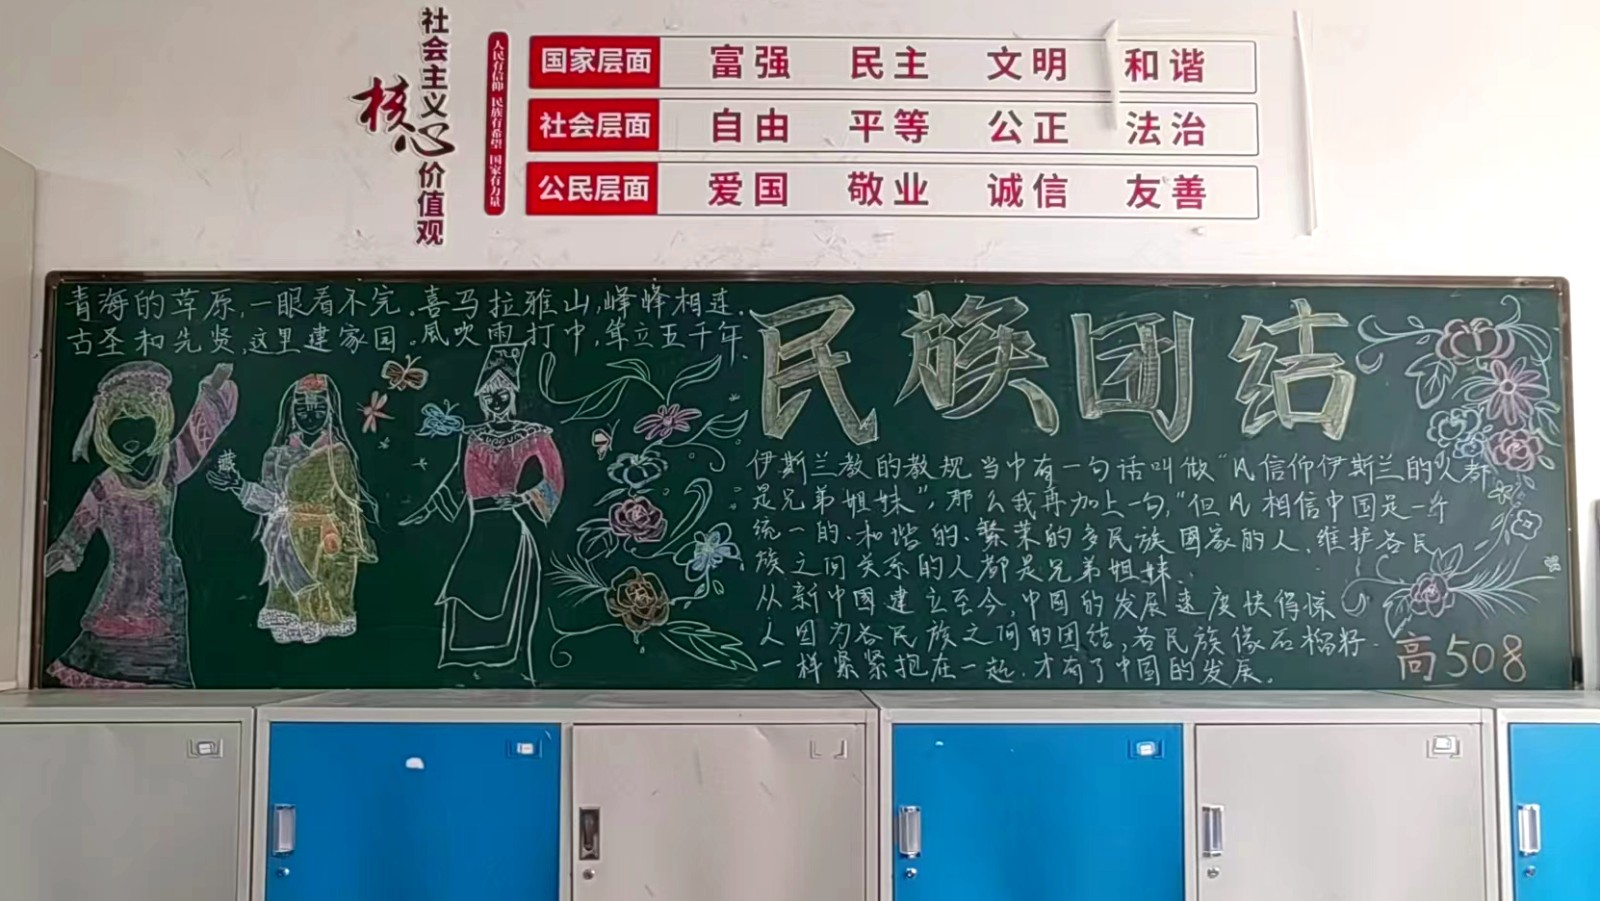 社会主义
核心
价值观
人民有信仰 民族有希望 国家有力量
国家层面 富强 民主 文明 和谐
社会层面 自由 平等 公正 法治
公民层面 爱国 敬业 诚信 友善
青海的草原,一眼看不完。喜马拉雅山,峰峰相连。
古圣和先贤,这里建家园。风吹雨打中,耸立五千年。
藏
民族团结
伊斯兰教的教规当中有一句话叫做“凡信仰伊斯兰的人都
是兄弟姐妹”,那么我再加上一句,“但凡相信中国是一个
统一的、和谐的、繁荣的多民族國家的人、维护各民
族之间关系的人都是兄弟姐妹、
从新中國建立至今,中国的发展速度快得惊
人因为各民族之间的团结,各民族像石榴籽
一样紧紧抱在一起.才有了中国的发展。
高508